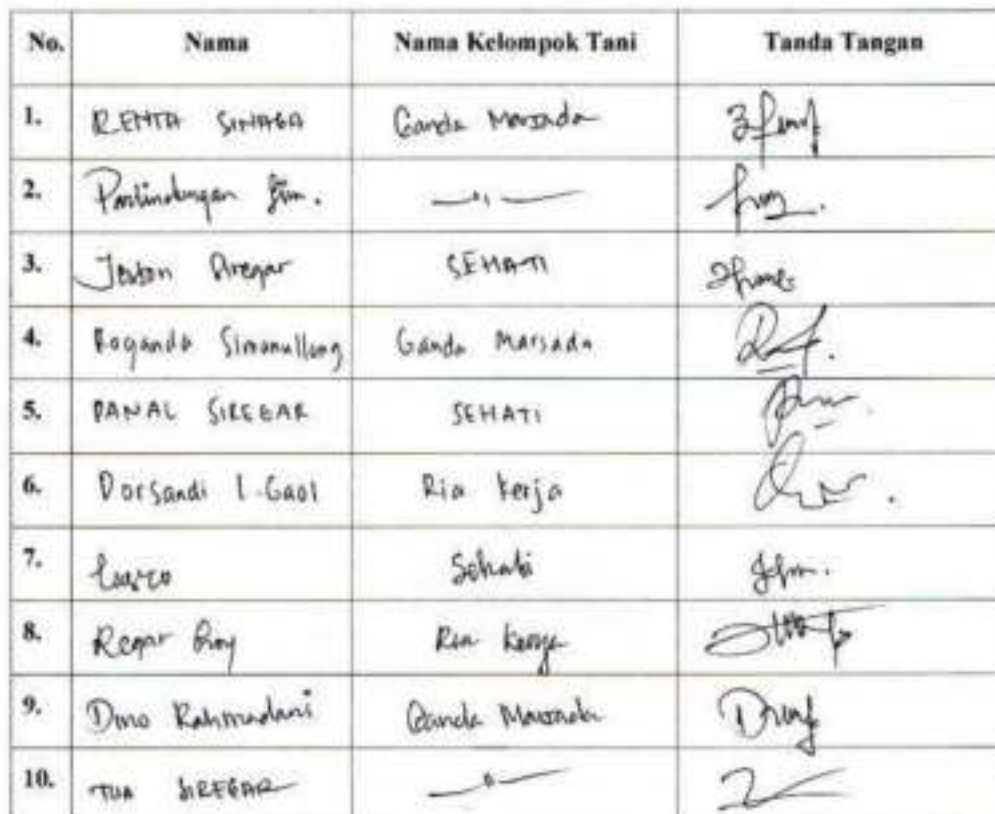 No. Nama Nama Kelompok Tani Tanda Tangan
1. RENTA SINAGA Ganda Marsada
2. Parlindungan Sim. —〃—
3. Jeston Siregar SEHATI
4. Roganda Simanullang Ganda Marsada
5. PANAL SIREGAR SEHATI
6. Dorsandi L-Gaol Ria Kerja
7. Sehati
8. Regar Roy Ria Kerja
9. Dino Rahmadani Ganda Marsada
10. TUA SIREGAR —〃—